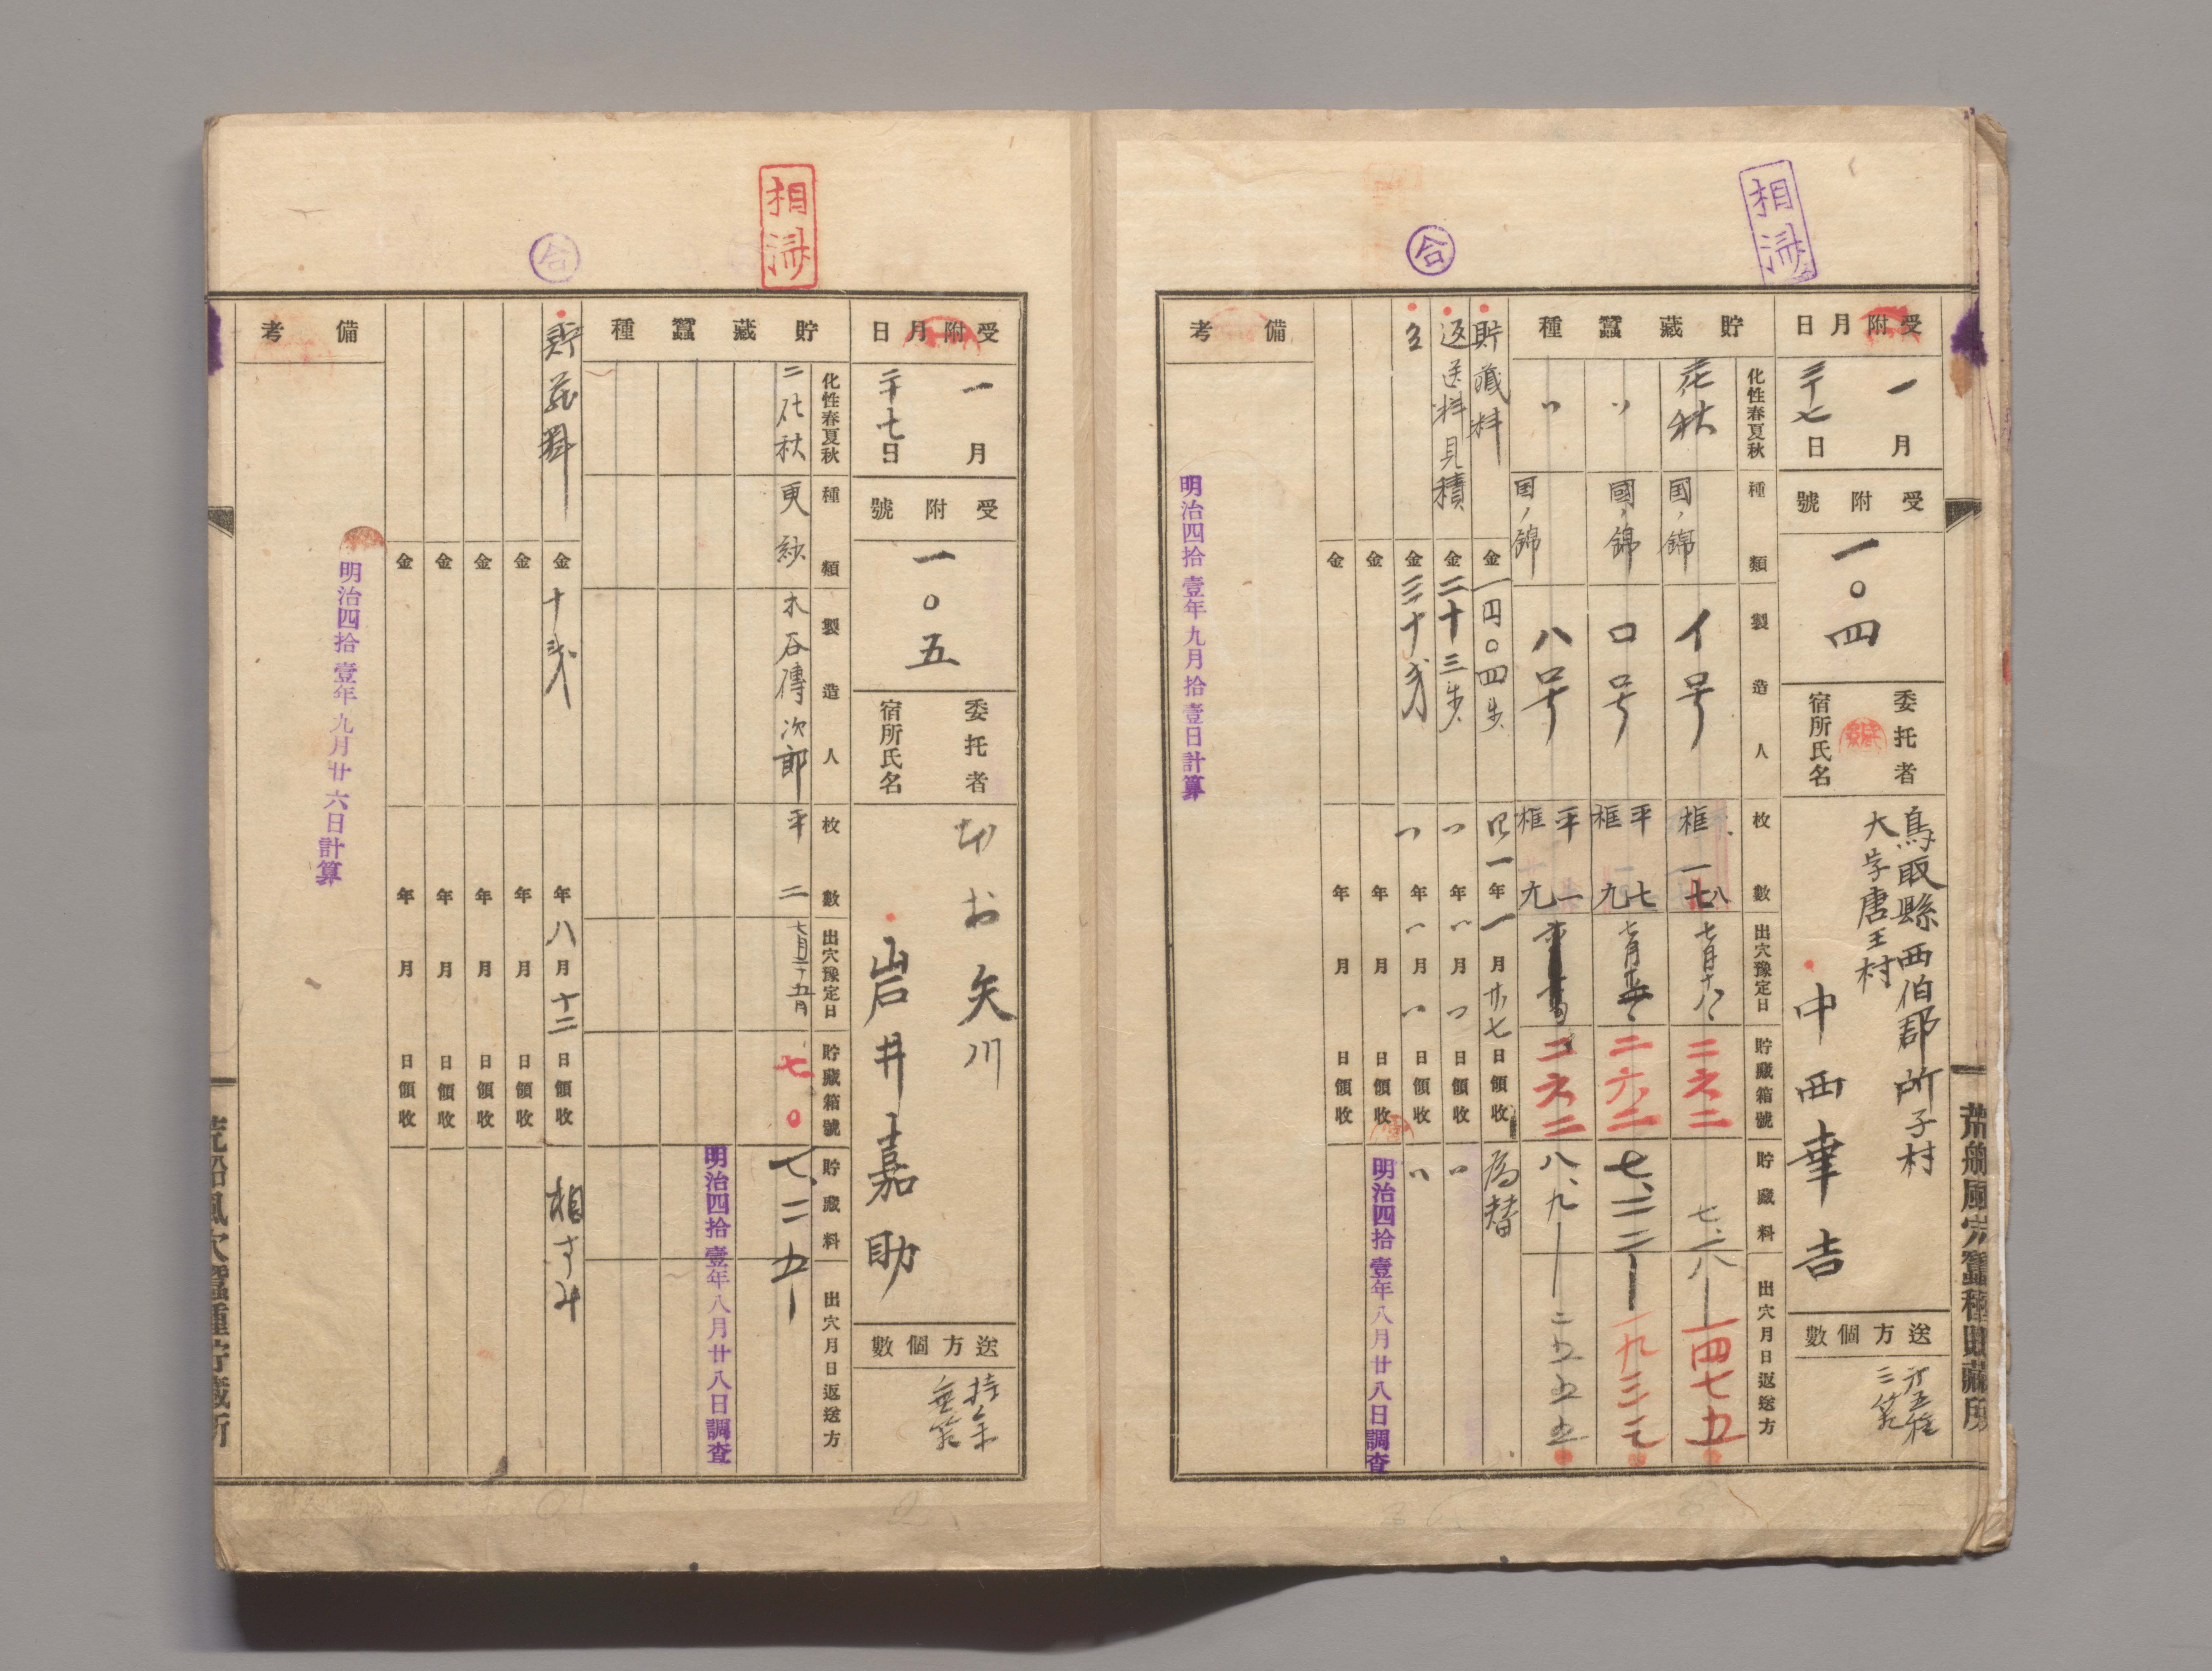 相済
合
受附月日
一月
二十七日
受附號
一〇四
委托者
宿所氏名
鳥取縣西伯郡所子村
大字唐王村
中西幸吉
送方個數
貯藏蠶種
化性春夏秋
種類
製造人
枚數
出穴豫定日
貯藏箱號
貯藏料
出穴月日返送方
国ノ錦
イ号
框
二六二
一四七五
〃
國ノ錦
ロ号
平
框
七
九
二六二
〃
国ノ錦
ハ号
平
框
一
九
二六二
八、九
二五五五
貯藏料
金
一円〇四歩
四一年一月廿七日領收
為替
返送料見積
金二十三歩
〃年〃月〃日領收
〃
金三十戔
〃年〃月〃日領收
〃
金
年月日領收
金
年月日領收
明治四拾壹年八月廿八日調査
備考
明治四拾壹年九月拾壹日計算
荒船風穴蠶種貯藏所
相済
合
受附月日
一月
二十七日
受附號
一〇五
委托者
宿所氏名
矢川
岩井嘉助
送方個數
貯藏蠶種
化性春夏秋
種類
製造人
枚數
出穴豫定日
貯藏箱號
貯藏料
出穴月日返送方
二化秋
更紗
木谷傳次郎
平
二
七月二十五日
七〇
七、二五
明治四拾壹年八月廿八日調査
貯藏料
金十戔
年八月十二日領收
相すみ
金
年月日領收
金
年月日領收
金
年月日領收
金
年月日領收
備考
明治四拾壹年九月廿六日計算
荒船風穴蠶種貯藏所